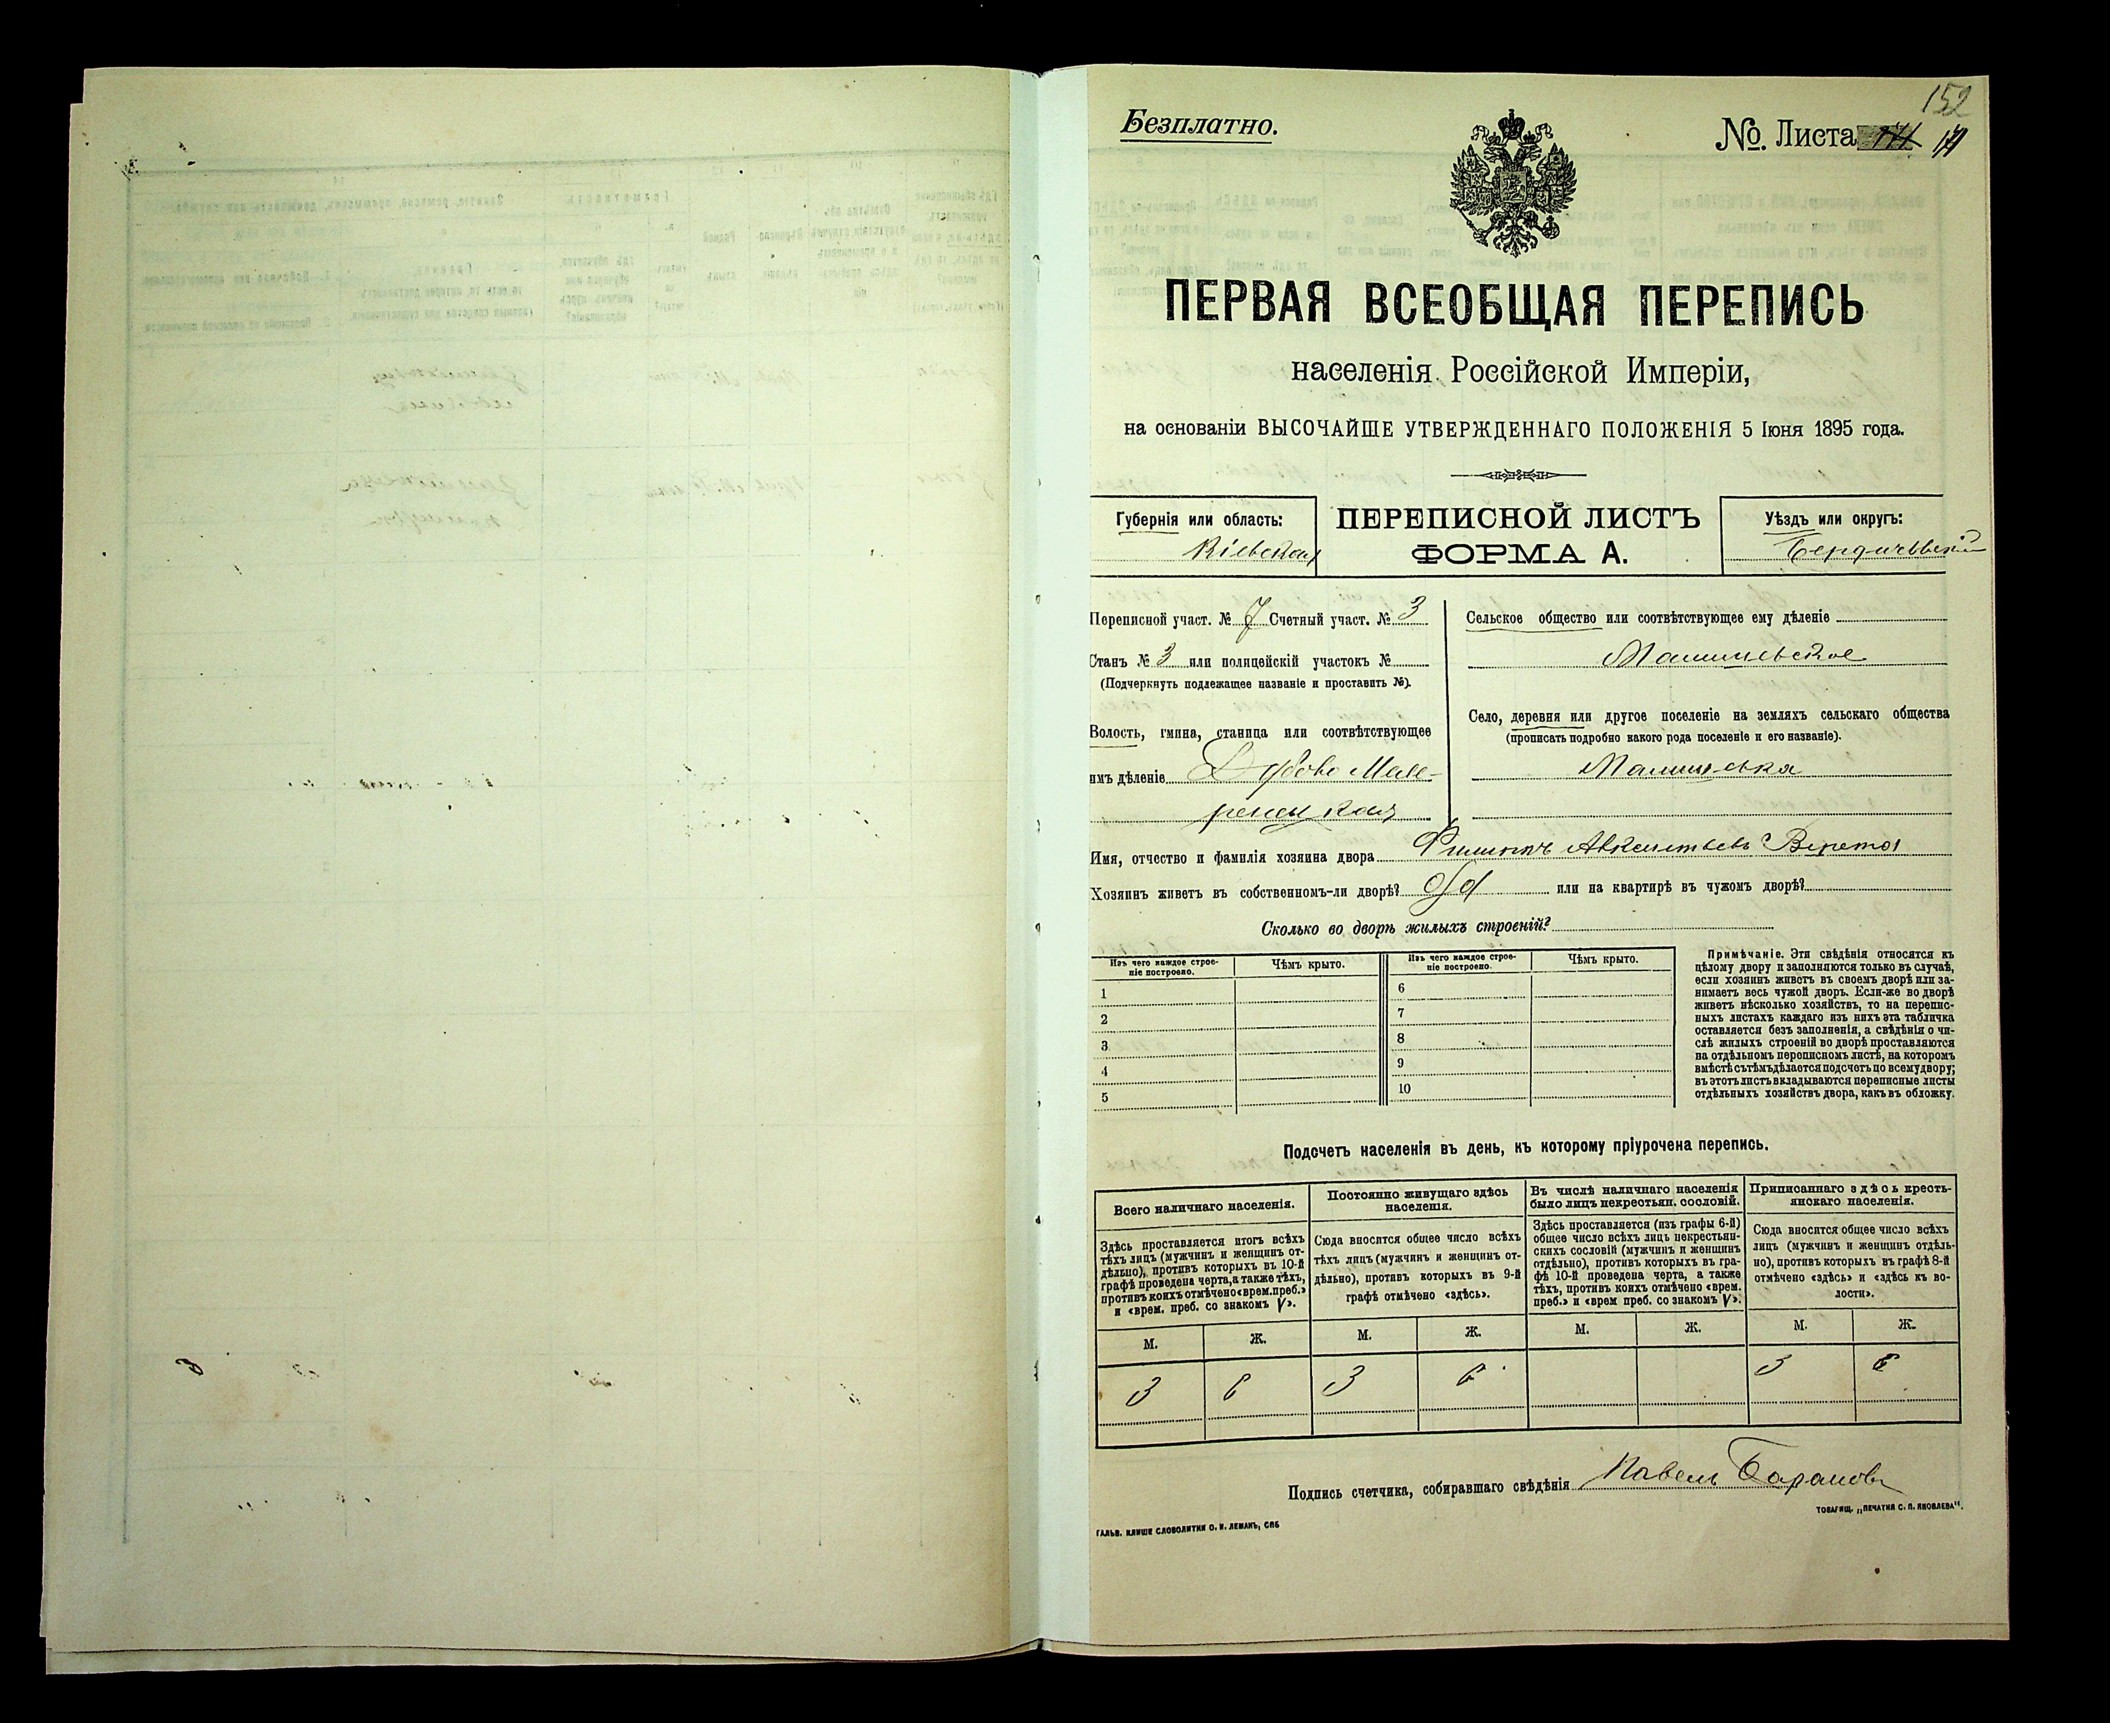 152
Безплатно.
№. Листа
ПЕРВАЯ ВСЕОБЩАЯ ПЕРЕПИСЬ
населенія Россійской Имперіи,
на основаніи ВЫСОЧАЙШЕ УТВЕРЖДЕННАГО ПОЛОЖЕНІЯ 5 Іюня 1895 года.
Губернія или область:
Кіевская
ПЕРЕПИСНОЙ ЛИСТЪ
ФОРМА А.
Уѣздъ или округъ:
Бердичевскій
Переписной участ. № 7 Счетный участ. № 3
Станъ № 3 или полицейскій участокъ №
(Подчеркнуть подлежащее названіе и проставить №).
Волость, гмина, станица или соотвѣтствующее
имъ дѣленіе Дубово Меже-
ренецкая
Сельское общество или соотвѣтствующее ему дѣленіе
Село, деревня или другое поселеніе на земляхъ сельскаго общества
(прописать подробно какого рода поселеніе и его названіе).
Имя, отчество и фамилія хозяина двора Филиппъ Авксентьевъ
Хозяинъ живетъ въ собственномъ-ли дворѣ? или на квартирѣ въ чужомъ дворѣ?
Сколько во дворѣ жилыхъ строеній?
Изъ чего каждое строе-
ніе построено.
Чѣмъ крыто.
Изъ чего каждое строе-
ніе построено.
Чѣмъ крыто.
1
2
3
4
5
6
7
8
9
10
Примѣчаніе. Эти свѣдѣнія относятся къ
цѣлому двору и заполняются только въ случаѣ,
если хозяинъ живетъ въ своемъ дворѣ или за-
нимаетъ весь чужой дворъ. Если-же во дворѣ
живетъ нѣсколько хозяйствъ, то на перепис-
ныхъ листахъ каждаго изъ нихъ эта табличка
оставляется безъ заполненія, а свѣдѣнія о чи-
слѣ жилыхъ строеній во дворѣ проставляются
на отдѣльномъ переписномъ листѣ, на которомъ
вмѣстѣ съ тѣмъ дѣлается подсчетъ по всему двору;
въ этотъ листъ вкладываются переписные листы
отдѣльныхъ хозяйствъ двора, какъ въ обложку.
Подсчетъ населенія въ день, къ которому пріурочена перепись.
Всего наличнаго населенія.
Постоянно живущаго здѣсь
населенія.
Въ числѣ наличнаго населенія
было лицъ некрестьян. сословій.
Приписаннаго здѣсь кресть-
янскаго населенія.
Здѣсь проставляется итогъ всѣхъ
тѣхъ лицъ (мужчинъ и женщинъ от-
дѣльно), противъ которыхъ въ 10-й
графѣ проведена черта, а также тѣхъ,
противъ коихъ отмѣчено «врем. преб.»
и «врем. преб. со знакомъ V».
Сюда вносится общее число всѣхъ
тѣхъ лицъ (мужчинъ и женщинъ от-
дѣльно), противъ которыхъ въ 9-й
графѣ отмѣчено «здѣсь».
Здѣсь проставляется (изъ графы 6-й)
общее число всѣхъ лицъ некрестьян-
скихъ сословій (мужчинъ и женщинъ
отдѣльно), противъ которыхъ въ гра-
фѣ 10-й проведена черта, а также
тѣхъ, противъ коихъ отмѣчено «врем.
преб.» и «врем преб. со знакомъ V».
Сюда вносится общее число всѣхъ
лицъ (мужчинъ и женщинъ отдѣль-
но), противъ которыхъ въ графѣ 8-й
отмѣчено «здѣсь» и «здѣсь къ во-
лости».
М. Ж. М. Ж. М. Ж. М. Ж.
3 6 3 6 3 6
Подпись счетчика, собиравшаго свѣдѣнія Павелъ Барановъ
ГАЛЬВ. КЛИШЕ СЛОВОЛИТНИ О. И. ЛЕМАНЪ, СПБ
ТОВАРИЩ. „ПЕЧАТНЯ С. П. ЯКОВЛЕВА“.